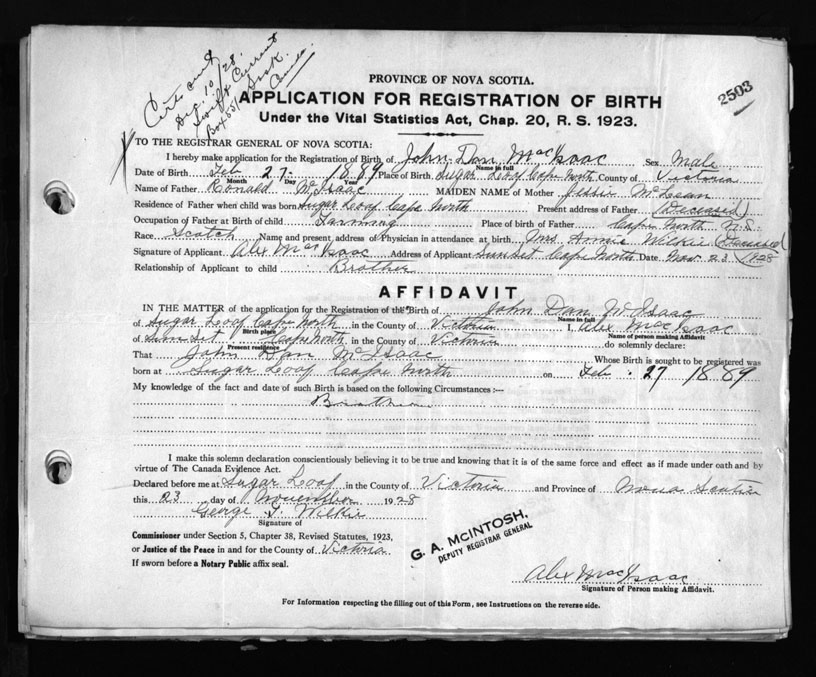 Dec. 10/28.
Swift Current
Box 651 Sask.
Canada.
2503
PROVINCE OF NOVA SCOTIA.
APPLICATION FOR REGISTRATION OF BIRTH
Under the Vital Statistics Act, Chap. 20, R. S. 1923.
TO THE REGISTRAR GENERAL OF NOVA SCOTIA:
I hereby make application for the Registration of Birth of John Dan MacIsaac Sex Male
Name in full
Date of Birth Feb 27 - 1889 Place of Birth Sugar Loaf Cape North County of Victoria
Month Day Year
Name of Father Ronald McIsaac MAIDEN NAME of Mother Jessie McLean
Residence of Father when child was born Sugar Loaf Cape North Present address of Father (Deceased)
Occupation of Father at Birth of child Farming Place of birth of Father Cape North N.S.
Race Scotch Name and present address of Physician in attendance at birth Mrs Annie Wilkie (Deceased)
Signature of Applicant Alex MacIsaac Address of Applicant Sunset Cape North Date Nov. 23 1928
Relationship of Applicant to child Brother
AFFIDAVIT
IN THE MATTER of the application for Registration of the Birth of John Dan McIsaac
Name in full
of Sugar Loaf Cape North in the County of Victoria I, Alex MacIsaac
Birth place Name of person making Affidavit
of Sunset Cape North in the County of Victoria do solemnly declare:
Present residence
That John Dan McIsaac Whose Birth is sought to be registered was
born at Sugar Loaf Cape North on Feb. 27 1889
My knowledge of the fact and date of such Birth is based on the following Circumstances:—
Brother
I make this solemn declaration conscientiously believing it to be true and knowing that it is of the same force and effect as if made under oath and by
virtue of The Canada Evidence Act.
Declared before me at Sugar Loaf in the County of Victoria and Province of Nova Scotia
this 23 day of November 1928
George J. Wilkie
Signature of
Commissioner under Section 5, Chapter 38, Revised Statutes, 1923,
or Justice of the Peace in and for the County of Victoria
If sworn before a Notary Public affix seal.
G. A. McINTOSH,
DEPUTY REGISTRAR GENERAL
Alex MacIsaac
Signature of Person making Affidavit.
For Information respecting the filling out of this Form, see Instructions on the reverse side.